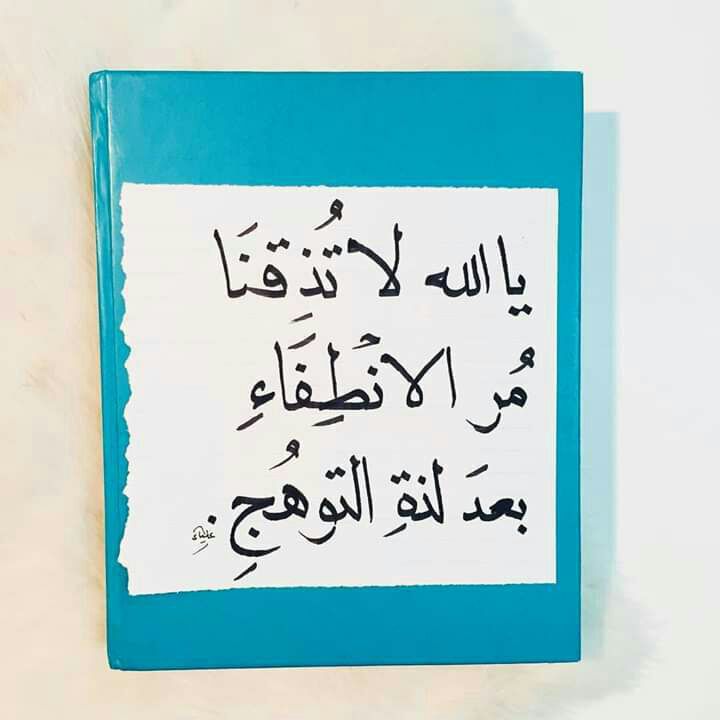 يا الله لا تُذِقنَا
مُر الانْطِفَاءِ
بعدَ لذةِ التوهُجِ.
علياء